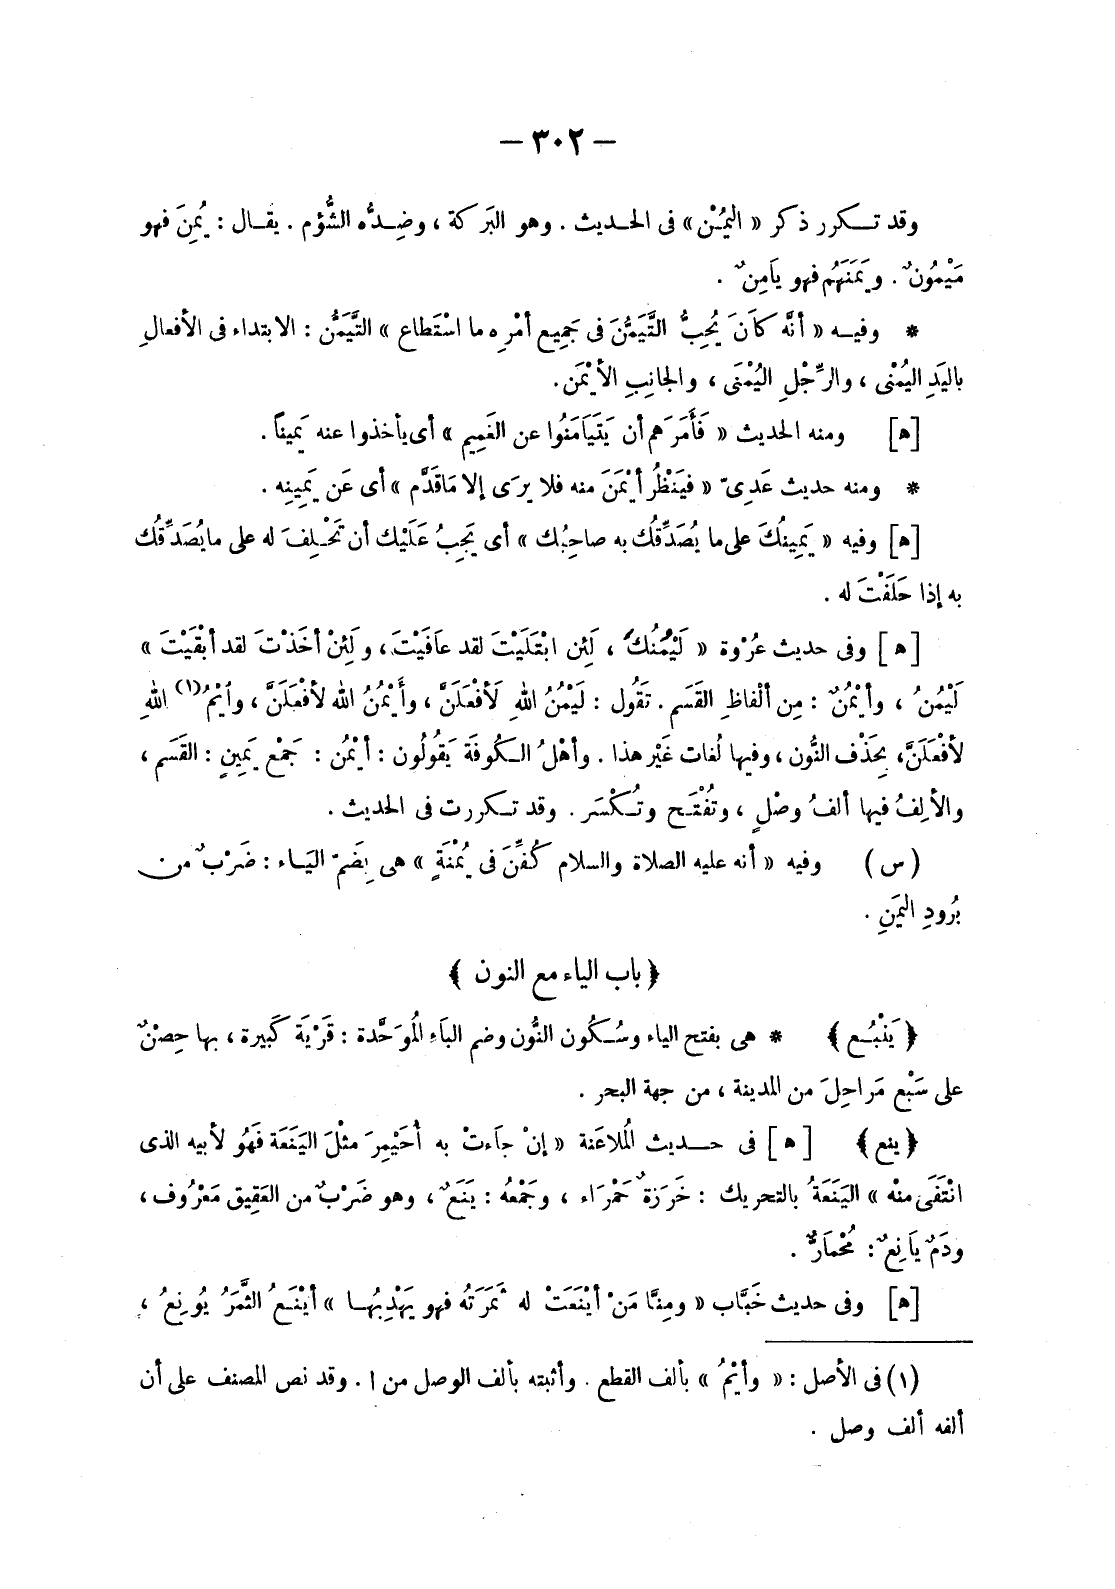 — ٣٠٢ —
وقد تكرر ذكر « اليُمْن » فى الحديث . وهو البَركة ، وضِدُّه الشُّؤم . يقال : يُمِنَ فهو
مَيْمُونٌ . ويَمَنَهُم فهو يامِنٌ .
* وفيه « أنَّه كانَ يُحِبُّ التَّيَمُّنَ فى جَمِيع أمْرِه ما اسْتَطاع » التَّيَمُّن : الابتداء فى الأفعالِ
باليَدِ اليُمْنى ، والرِّجْلِ اليُمْنَى ، والجانِبِ الأيْمَن .
[ ﻫ ] ومنه الحديث « فَأَمَرَهم أن يَتَيَامَنُوا عن الغَمِيم » أى يأخذوا عنه يَميناً .
* ومنه حديث عَدِىّ « فيَنْظُر أيْمَنَ منه فلا يرَى إلا مَاقَدَّم » أى عَن يَمِينِه .
[ ﻫ ] وفيه « يَمِينُكَ على ما يُصَدِّقُك به صاحِبُك » أى يَجِبُ عَلَيْك أن تَحْلِفَ له على مايُصَدِّقُك
به إذا حَلَفْتَ له .
[ ﻫ ] وفى حديث عُرْوة « لَيْمُنُكَ ، لَئِن ابْتَلَيْتَ لقد عافَيْتَ ، ولَئِنْ أخَذْتَ لقد أبْقَيْتَ »
لَيْمُنُ ، وأيْمُنٌ : مِن ألْفاظِ القَسَم . تَقُول : لَيْمُنُ اللهِ لَأفْعَلَنَّ ، وأَيْمُنُ الله لأفْعَلَنَّ ، وٱيْمُ(١) اللهِ
لأفْعَلَنَّ ، بِحَذْف النُّون ، وفيها لُغات غَيْر هذا . وأهْلُ الكُوفَة يَقُولُون : أيْمُن : جَمْع يَمِينٍ : القَسَم ،
والألِفُ فيها ألفُ وصْلٍ ، وتُفْتَح وتُكْسَر . وقد تكررت فى الحديث .
( س ) وفيه « أنه عليه الصلاة والسلام كُفِّنَ فى يُمْنَةٍ » هى بِضَمّ اليَاء : ضَرْبٌ من
بُرودِ اليَمَنِ .
﴿ باب الياء مع النون ﴾
﴿ يَنْبُع ﴾ * هى بفتح الياء وسُكُون النُّون وضم البَاءِ المُوَحَّدة : قَرْيَة كَبيرة ، بها حِصْنٌ
على سَبْع مَراحِلَ من المدينة ، من جهة البحر .
﴿ ينع ﴾ [ ﻫ ] فى حديث المُلاعَنة « إنْ جاءتْ به أُحَيْمِرَ مثْلَ اليَنَعَة فَهُو لأبيه الذى
انْتَفَى منْه » اليَنَعَةُ بالتحريك : خَرَزةٌ حَمْرَاء ، وجَمْعُه : يَنَعٌ ، وهو ضَرْبٌ من العَقِيق مَعْرُوف ،
ودَمٌ يَانِعٌ : مُحْمَارٌّ .
[ ﻫ ] وفى حديث خَبَّاب « ومِنَّا مَنْ أيْنَعَتْ له ثَمَرَتُه فهو يَهْدِبُها » أيْنَعُ الثَّمَرُ يُونِعُ ،
(١) فى الأصل : « وأيْمُ » بألف القطع . وأثبته بألف الوصل من ا . وقد نص المصنف على أن
ألفه ألف وصل .